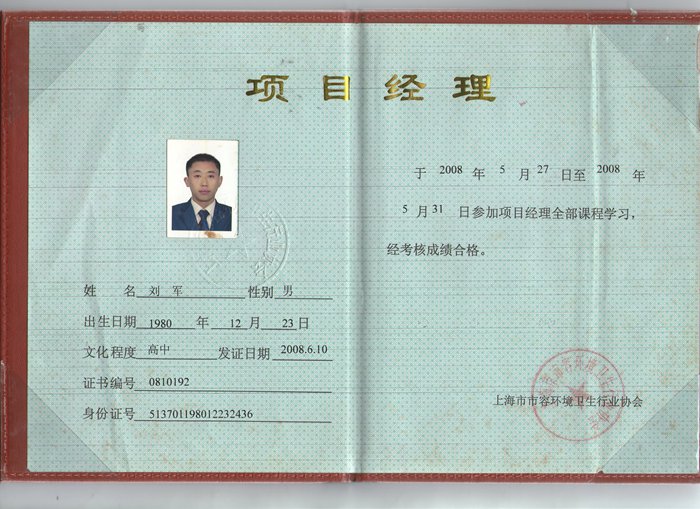 项目经理
姓 名 刘 军 性别 男
出生日期 1980 年 12 月 23 日
文化程度 高中 发证日期 2008.6.10
证书编号 0810192
身份证号 513701198012232436
于 2008 年 5 月 27 日至 2008 年
5 月 31 日参加项目经理全部课程学习，
经考核成绩合格。
上海市市容环境卫生行业协会